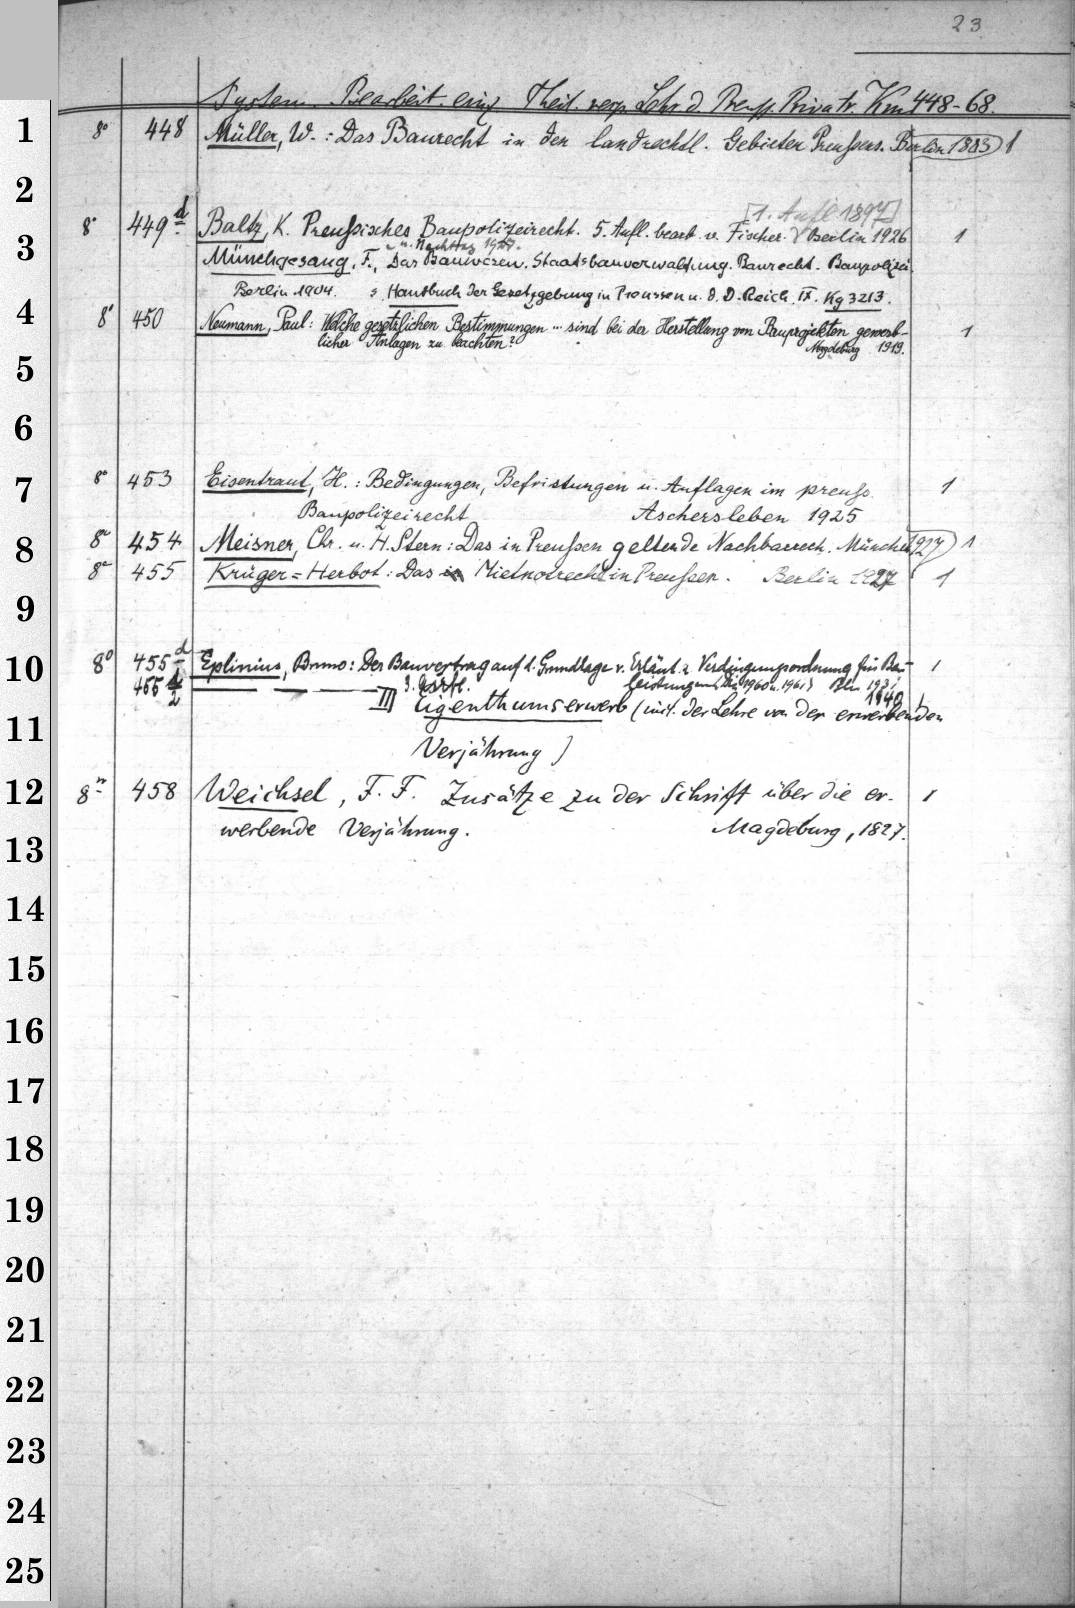 23
System. Bearbeit. einz. Theil. resp. Lehr. d. Preuß. Privatr. Km 448-68.
1 8° 448 Müller, W.: Das Baurecht in den landrechtl. Gebieten Preußens. Berlin 1883 1
2
[1. Aufl 1897]
3 8° 449d Baltz, K. Preußisches Baupolizeirecht. 5. Aufl. bearb. v. Fischer. Berlin 1926 1
u. Nachtrag
Münchgesang, F., Das Bauwesen. Staatsbauverwaltung. Baurecht. Baupolizei.
Berlin 1904. s. Handbuch der Gesetzgebung in Preussen u. d. D. Reich. IX. Kg 3213.
4 8° 450 Neumann, Paul: Welche gesetzlichen Bestimmungen ... sind bei der Herstellung von Bauprojekten gewerb-
licher Anlagen zu beachten? Magdeburg 1919. 1
5
6
7 8° 453 Eisentraut, H.: Bedingungen, Befristungen u. Auflagen im preuß. 1
Baupolizeirecht Aschersleben 1925
8 8° 454 Meisner, Chr. u. H. Stern: Das in Preußen geltende Nachbarrech. München 1927 1
8° 455 Krüger=Herbot: Das Mietnotrecht in Preußen. Berlin 1927 1
9
10 8° 455d Eplinius, Bruno: Der Bauvertrag auf d. Grundlage v. Erläut. z. Verdingungsordnung für Bau- 1
455d/2 — — 3. Aufl. leistungen (Din 1960 u. 1961) Bln 193
1940
III] Eigenthumserwerb (incl. der Lehre von der erwerbenden
11
Verjährung)
12 8° 458 Weichsel, F. F. Zusätze zu der Schrift über die er- 1
werbende Verjährung. Magdeburg, 1827.
13
14
15
16
17
18
19
20
21
22
23
24
25